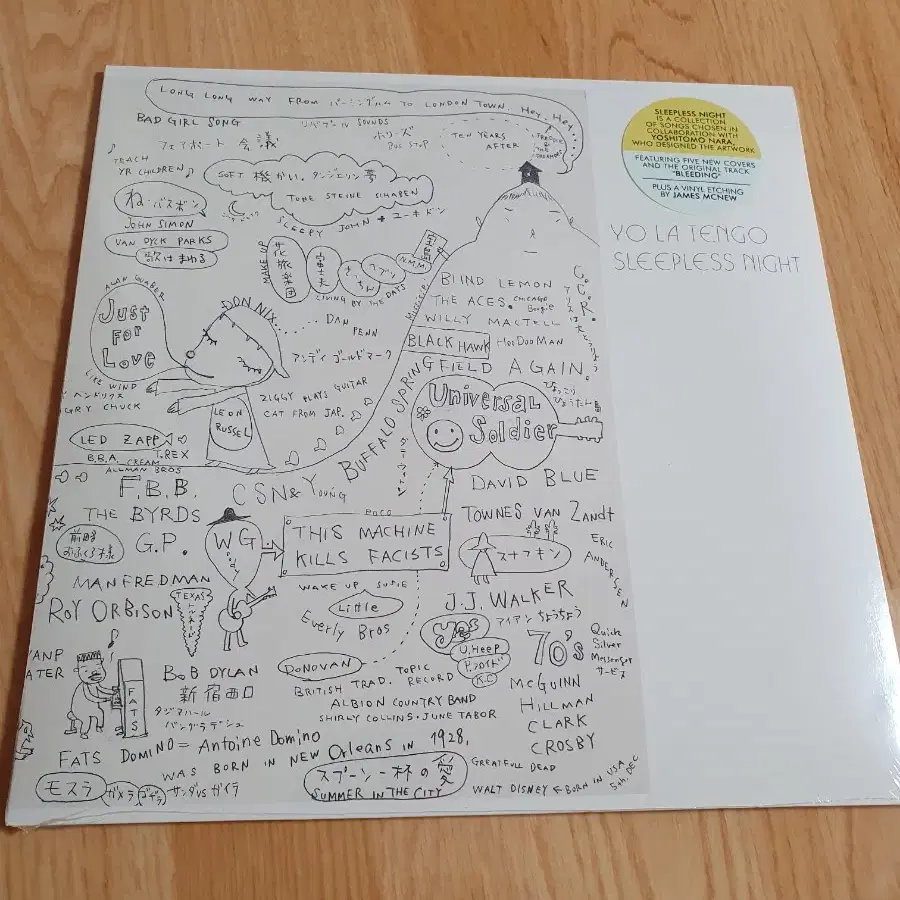 LONG LONG WAY FROM バーミンガム TO LONDON TOWN. Hey, Hey...
BAD GIRL SONG
リバプール SOUNDS
ホリーズ
BUS STOP
TEN YEARS
AFTER
フェアポート 会議
TEACH
YR CHILDREN♪
SOFT 機かい。タンジェリン夢
TONE STEINE SCHABEN
SLEEPY JOHN + ユーキドン
ね。バスボン
JOHN SIMON
VAN DYCK PARKS
歌はまわる
MAKE UP
花旅楽団
N.M.M.
LIVING BY THE DAYS
BLIND LEMON
THE ACES. CHICAGO
Boogie
WILLY MACTELL
BLACK HAWK
HOODOO MAN
G.C.R.
Just
For
Love
DON NIX.......
DAN
PENN
アンディ ゴールドマーク
LIKE WIND
ヘンドリクス
GRY CHUCK
ZIGGY PLAYS GUITAR
CAT FROM JAP.
LEON
RUSSEL
BUFFALO SPRINGFIELD AGAIN.
Universal
Soldier
ひょっこり
ひょうたん島
LED ZAPP
B.B.A. CREAM T.REX
ALLMAN BROS
F.B.B.
CSN& Young
DAVID BLUE
THE BYRDS
G.P.
前略
おふくろ様
WG
POCO
THIS MACHINE
KILLS FACISTS
TOWNES VAN Zandt
スナフキン
ERIC
ANDERSEN
MANFREDMAN
ROY ORBISON
TEXAS
WAKE UP SUSIE
Little
Everly Bros
J.J. WALKER
アイアン ちょうちょう
yes
U.HEEP
P.フロイド
K.C
70's
Quick
Silver
Messenger
サービス
ANP
ATER
FATS
BOB DYLAN
新宿西口
タジマハール
バングラデシュ
DONOVAN
BRITISH TRAD. TOPIC
RECORD
ALBION COUNTRY BAND
SHIRLY COLLINS・JUNE TABOR
McGUINN
HILLMAN
CLARK
CROSBY
FATS DOMINO = Antoine Domino
WAS BORN IN NEW Orleans IN 1928,
モスラ
ガメラ
ゴヂラ
サンダ VS ガイラ
スプーン一杯の愛
SUMMER IN THE CITY
GREATFULL DEAD
WALT DISNEY ← BORN IN USA
5th, DEC
SLEEPLESS NIGHT
IS A COLLECTION
OF SONGS CHOSEN IN
COLLABORATION WITH
YOSHITOMO NARA,
WHO DESIGNED THE ARTWORK
FEATURING FIVE NEW COVERS
AND THE ORIGINAL TRACK
"BLEEDING"
PLUS A VINYL ETCHING
BY JAMES MCNEW
YO LA TENGO
SLEEPLESS NIGHT